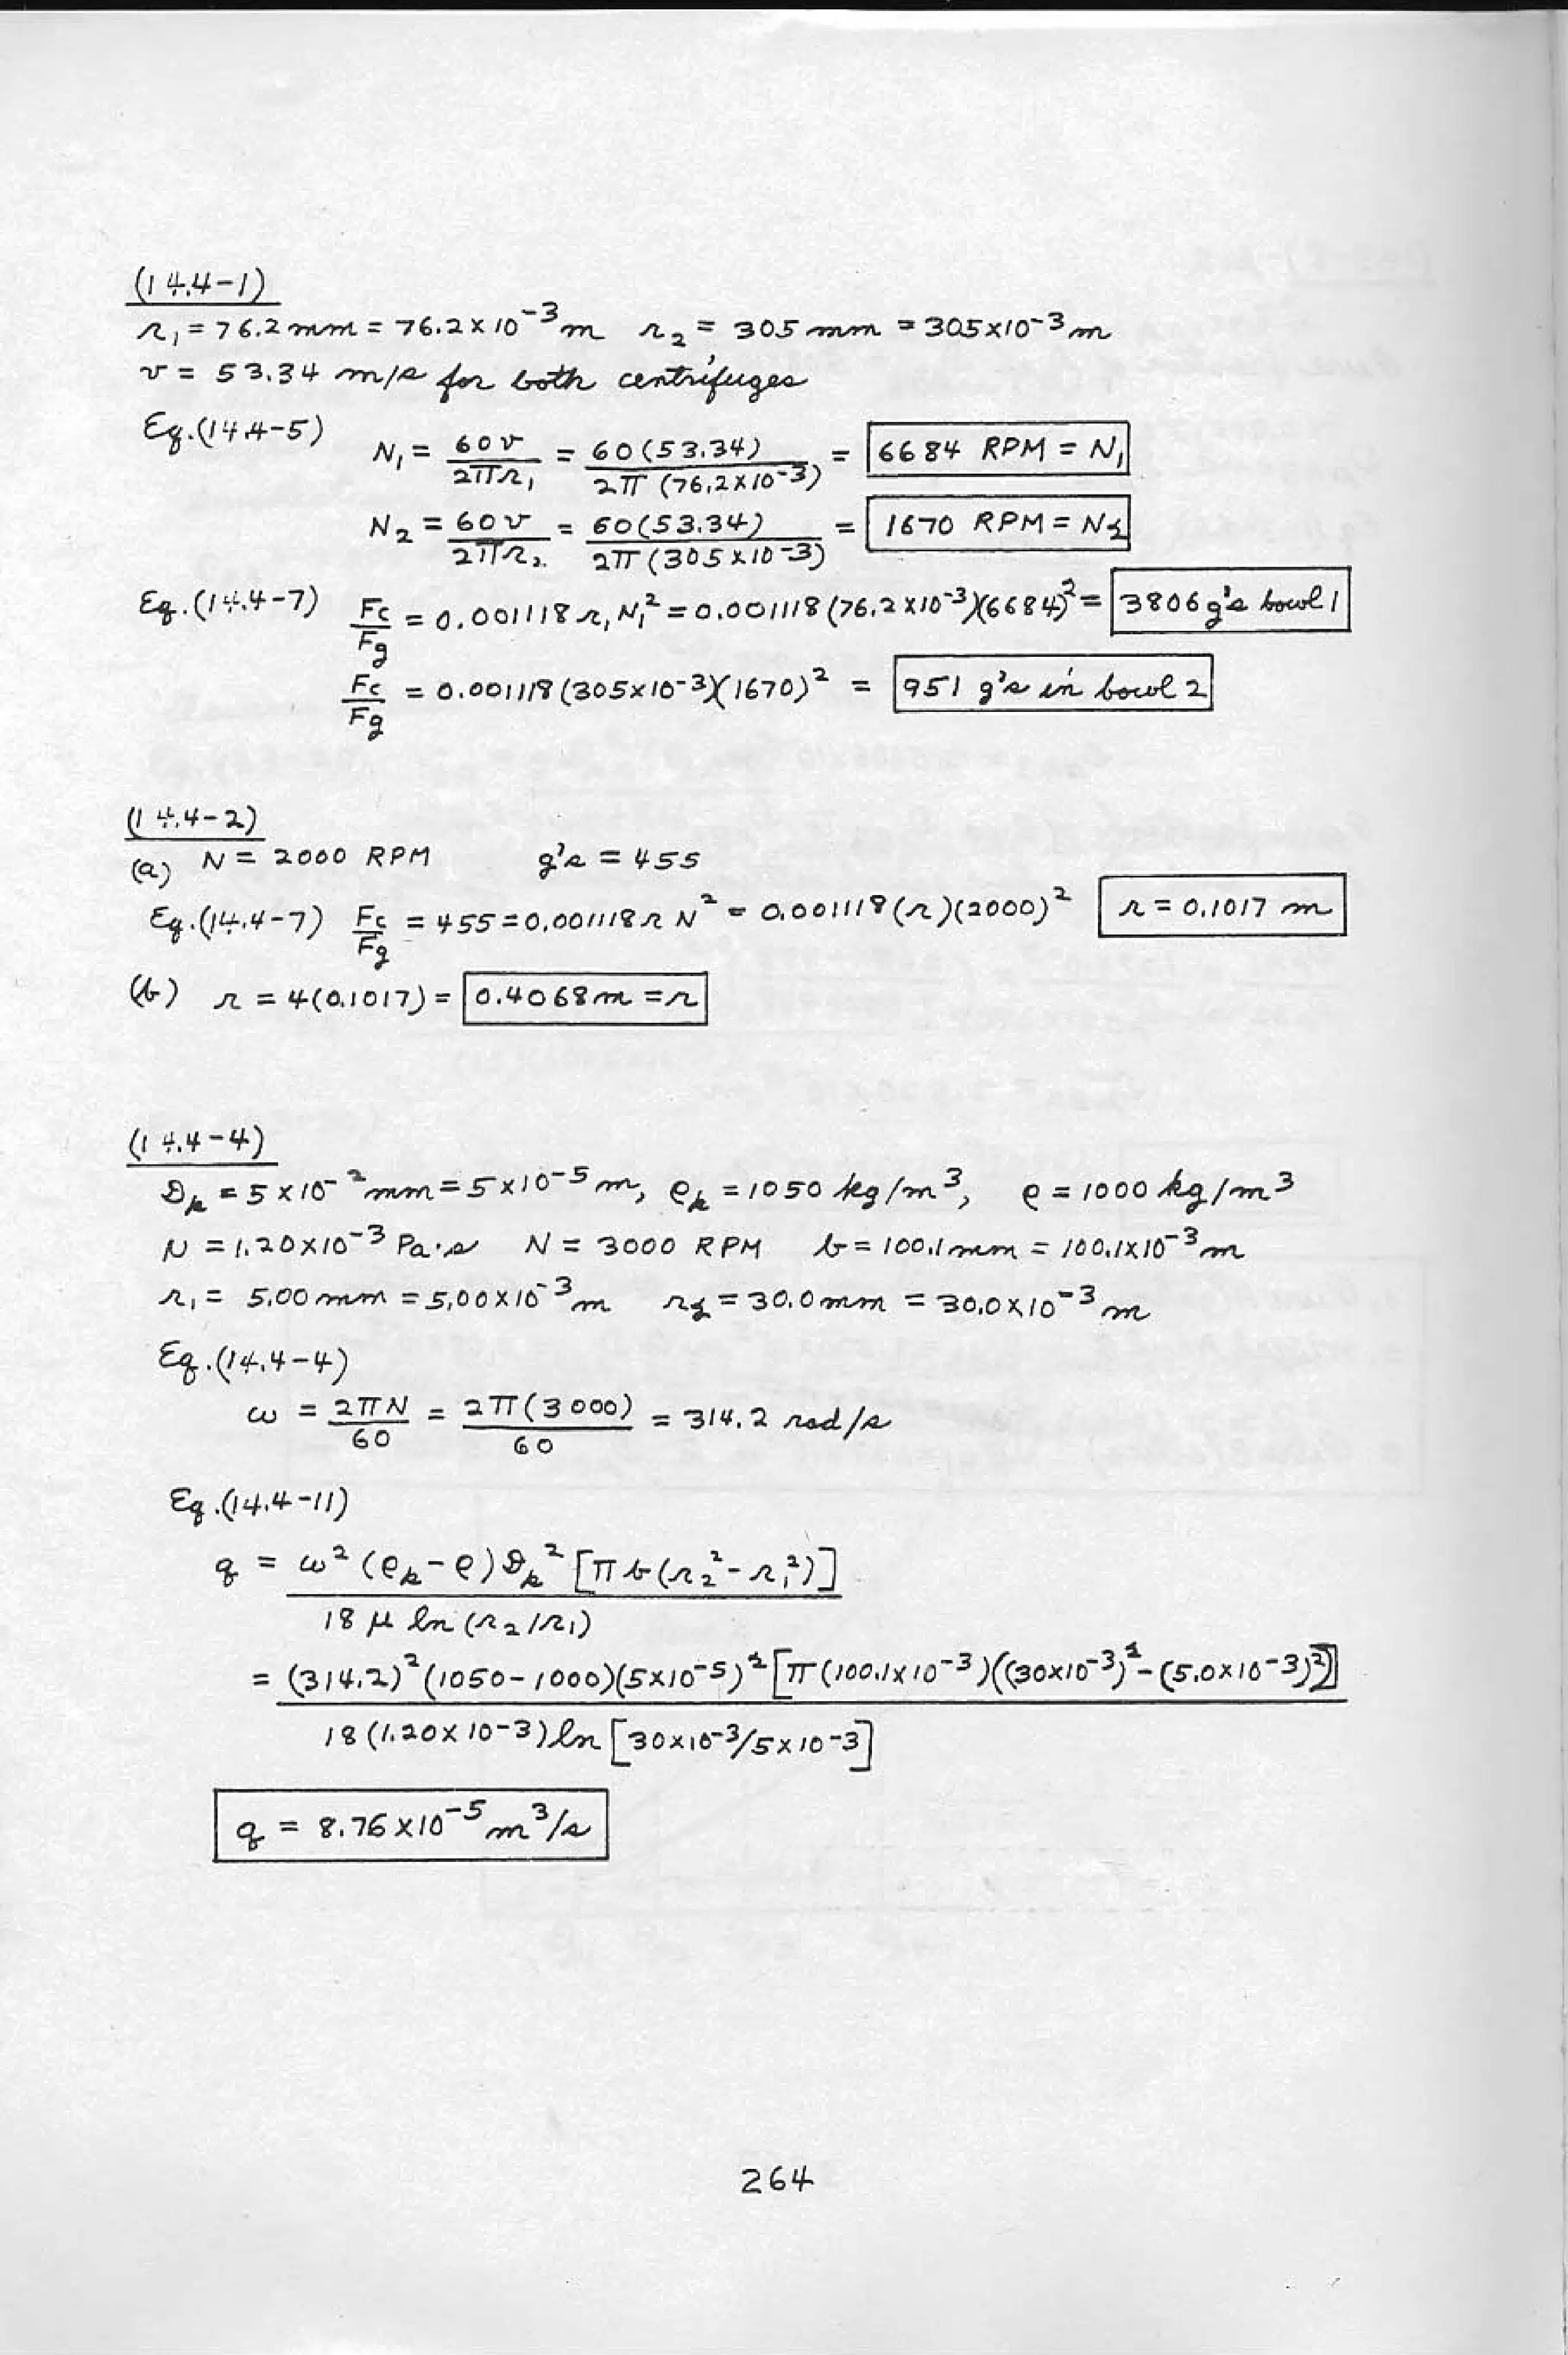 (14.4-1)
r₁ = 76.2 mm = 76.2 x 10⁻³ m r₂ = 305 mm = 305x10⁻³ m
v = 53.34 m/s for both centrifuges
Eq.(14.4-5) N₁ = 60v/2πr₁ = 60(53.34)/2π(76.2x10⁻³) = 6684 RPM = N₁
N₂ = 60v/2πr₂ = 60(53.34)/2π(305x10⁻³) = 1670 RPM = N₂
Eq.(14.4-7) Fc/Fg = 0.001118 r₁ N₁² = 0.001118(76.2x10⁻³)(6684)² = 3806 g's bowl 1
Fc/Fg = 0.001118(305x10⁻³)(1670)² = 951 g's in bowl 2
(14.4-2)
(a) N = 2000 RPM g's = 455
Eq.(14.4-7) Fc/Fg = 455 = 0.001118 r N² = 0.001118(r)(2000)² r = 0.1017 m
(b) r = 4(0.1017) = 0.4068 m = r
(14.4-4)
Dₚ = 5x10⁻² mm = 5x10⁻⁵ m, ρₚ = 1050 kg/m³, ρ = 1000 kg/m³
μ = 1.20x10⁻³ Pa·s N = 3000 RPM b = 100.1 mm = 100.1x10⁻³ m
r₁ = 5.00 mm = 5.00x10⁻³ m r₂ = 30.0 mm = 30.0x10⁻³ m
Eq.(14.4-4)
ω = 2πN/60 = 2π(3000)/60 = 314.2 rad/s
Eq.(14.4-11)
q = ω²(ρₚ-ρ)Dₚ²[πb(r₂²-r₁²)]
18 μ ln(r₂/r₁)
= (314.2)²(1050-1000)(5x10⁻⁵)²[π(100.1x10⁻³)((30x10⁻³)²-(5.0x10⁻³)²)]
18(1.20x10⁻³)ln[30x10⁻³/5x10⁻³]
q = 8.76x10⁻⁵ m³/s
264